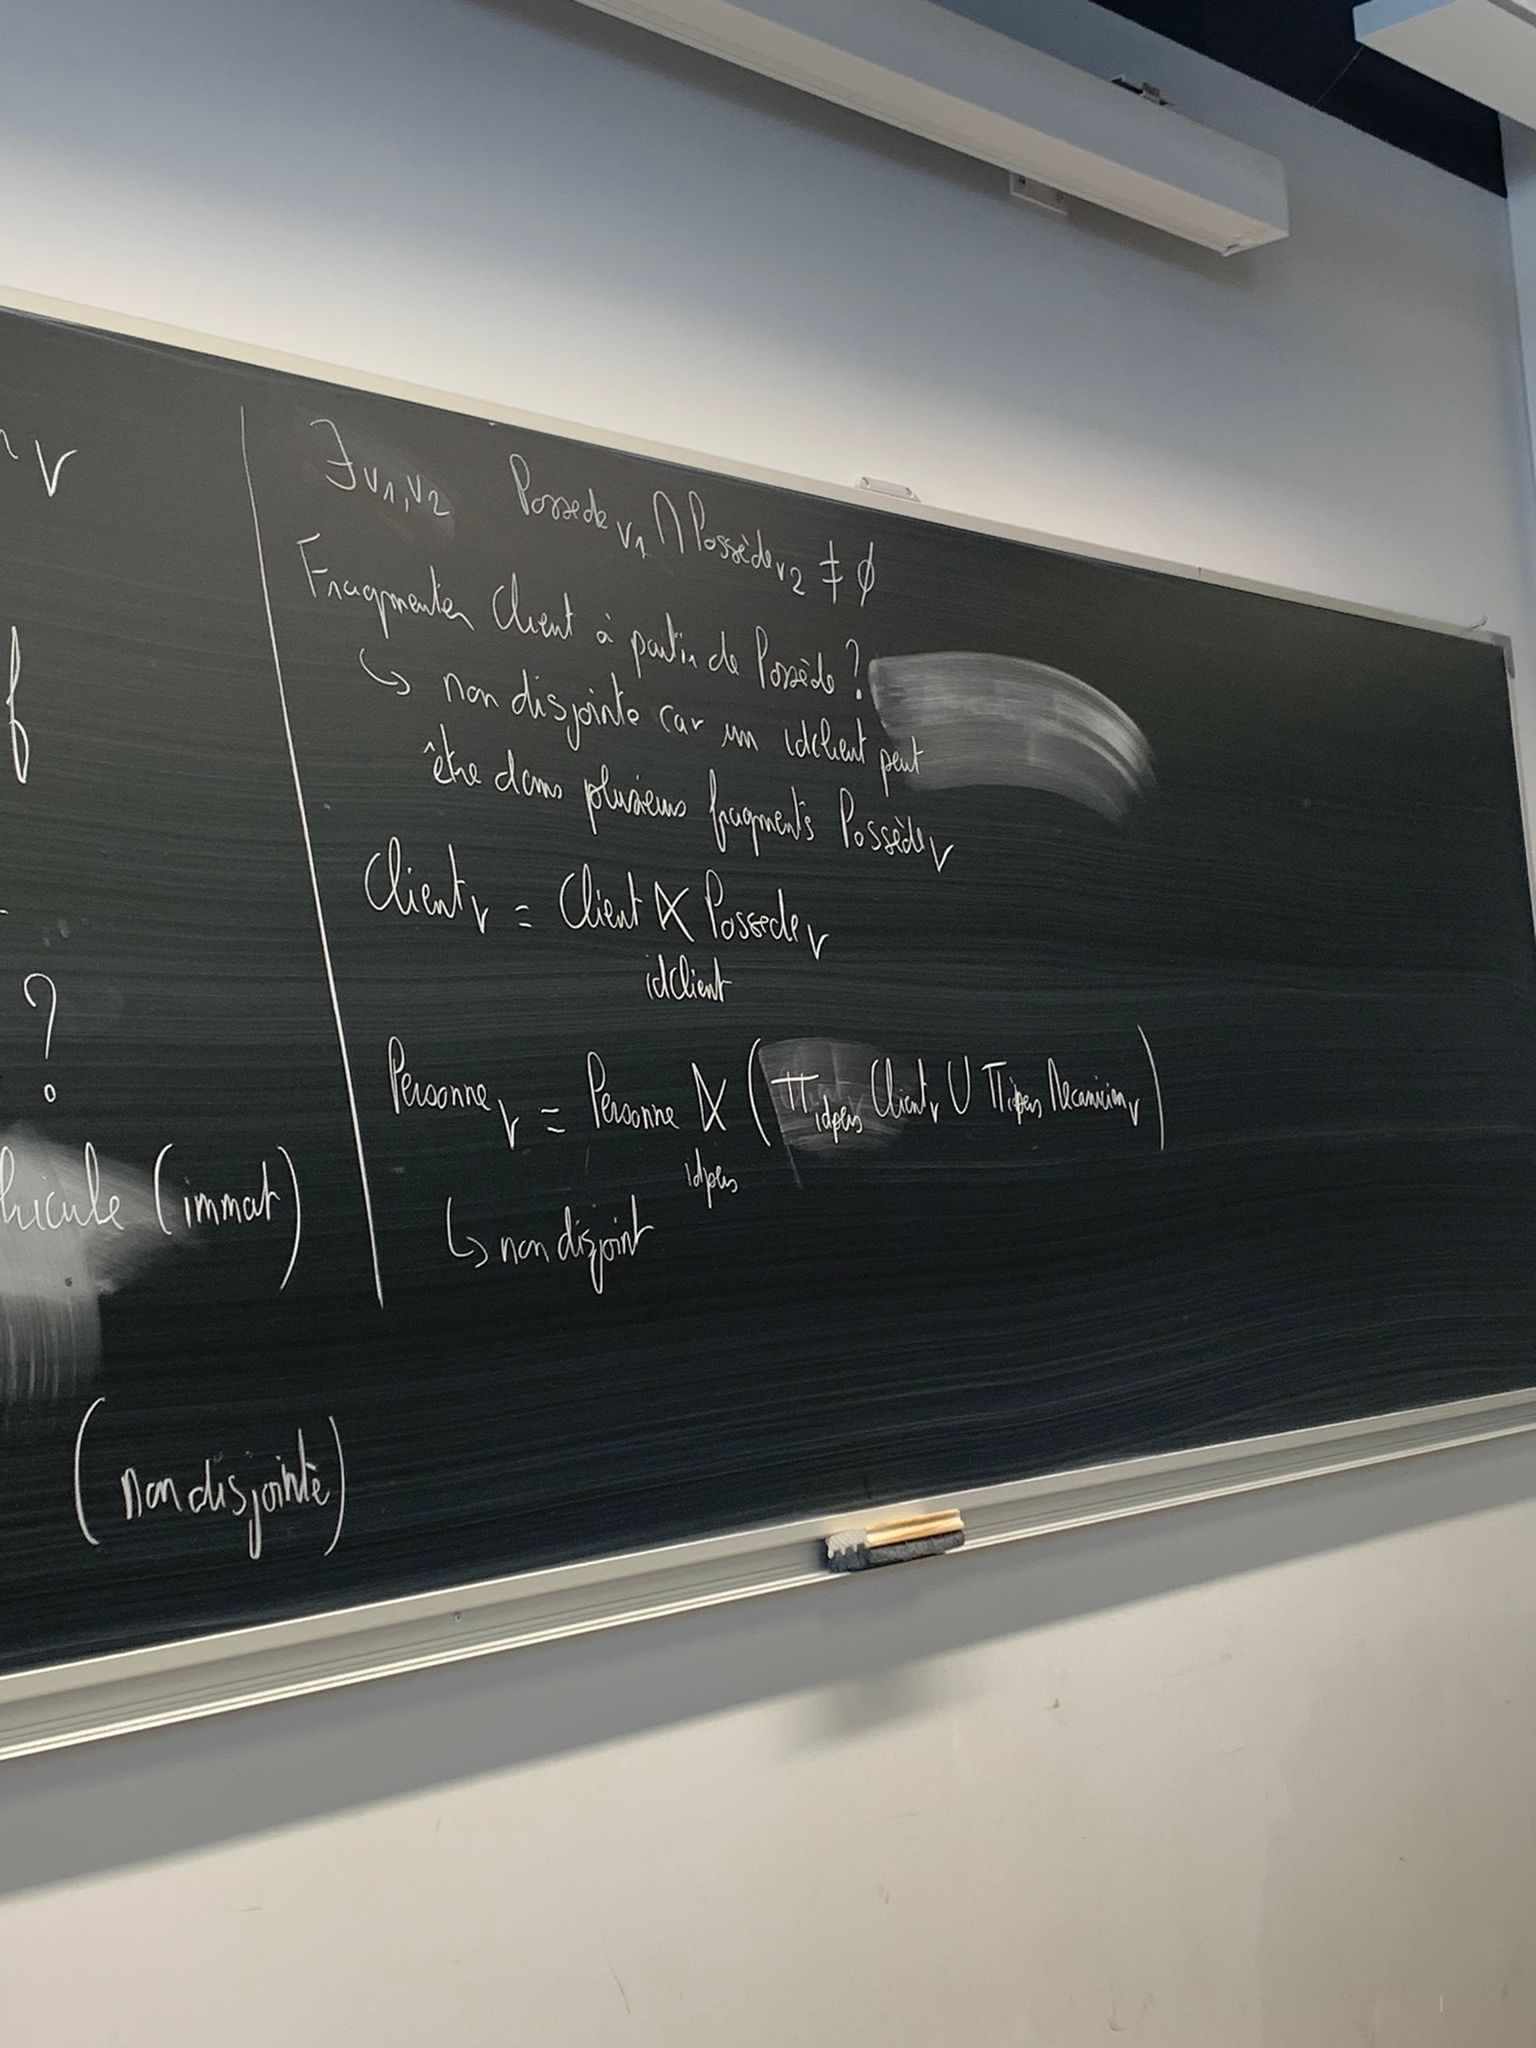 v
f
?
hicule (immat)
(non disjointe)
∃v1,v2 Possede v1 ∩ Possède v2 ≠ ∅
Fragmenter Client à partir de Possède ?
↳ non disjointe car un idclient peut
être dans plusieurs fragments Possède v
Client v = Client ⋉ Possede v
idclient
Personne v = Personne ⋉ (π idpers Client v ∪ π idpers Mecanicien v)
idpers
↳ non disjoint